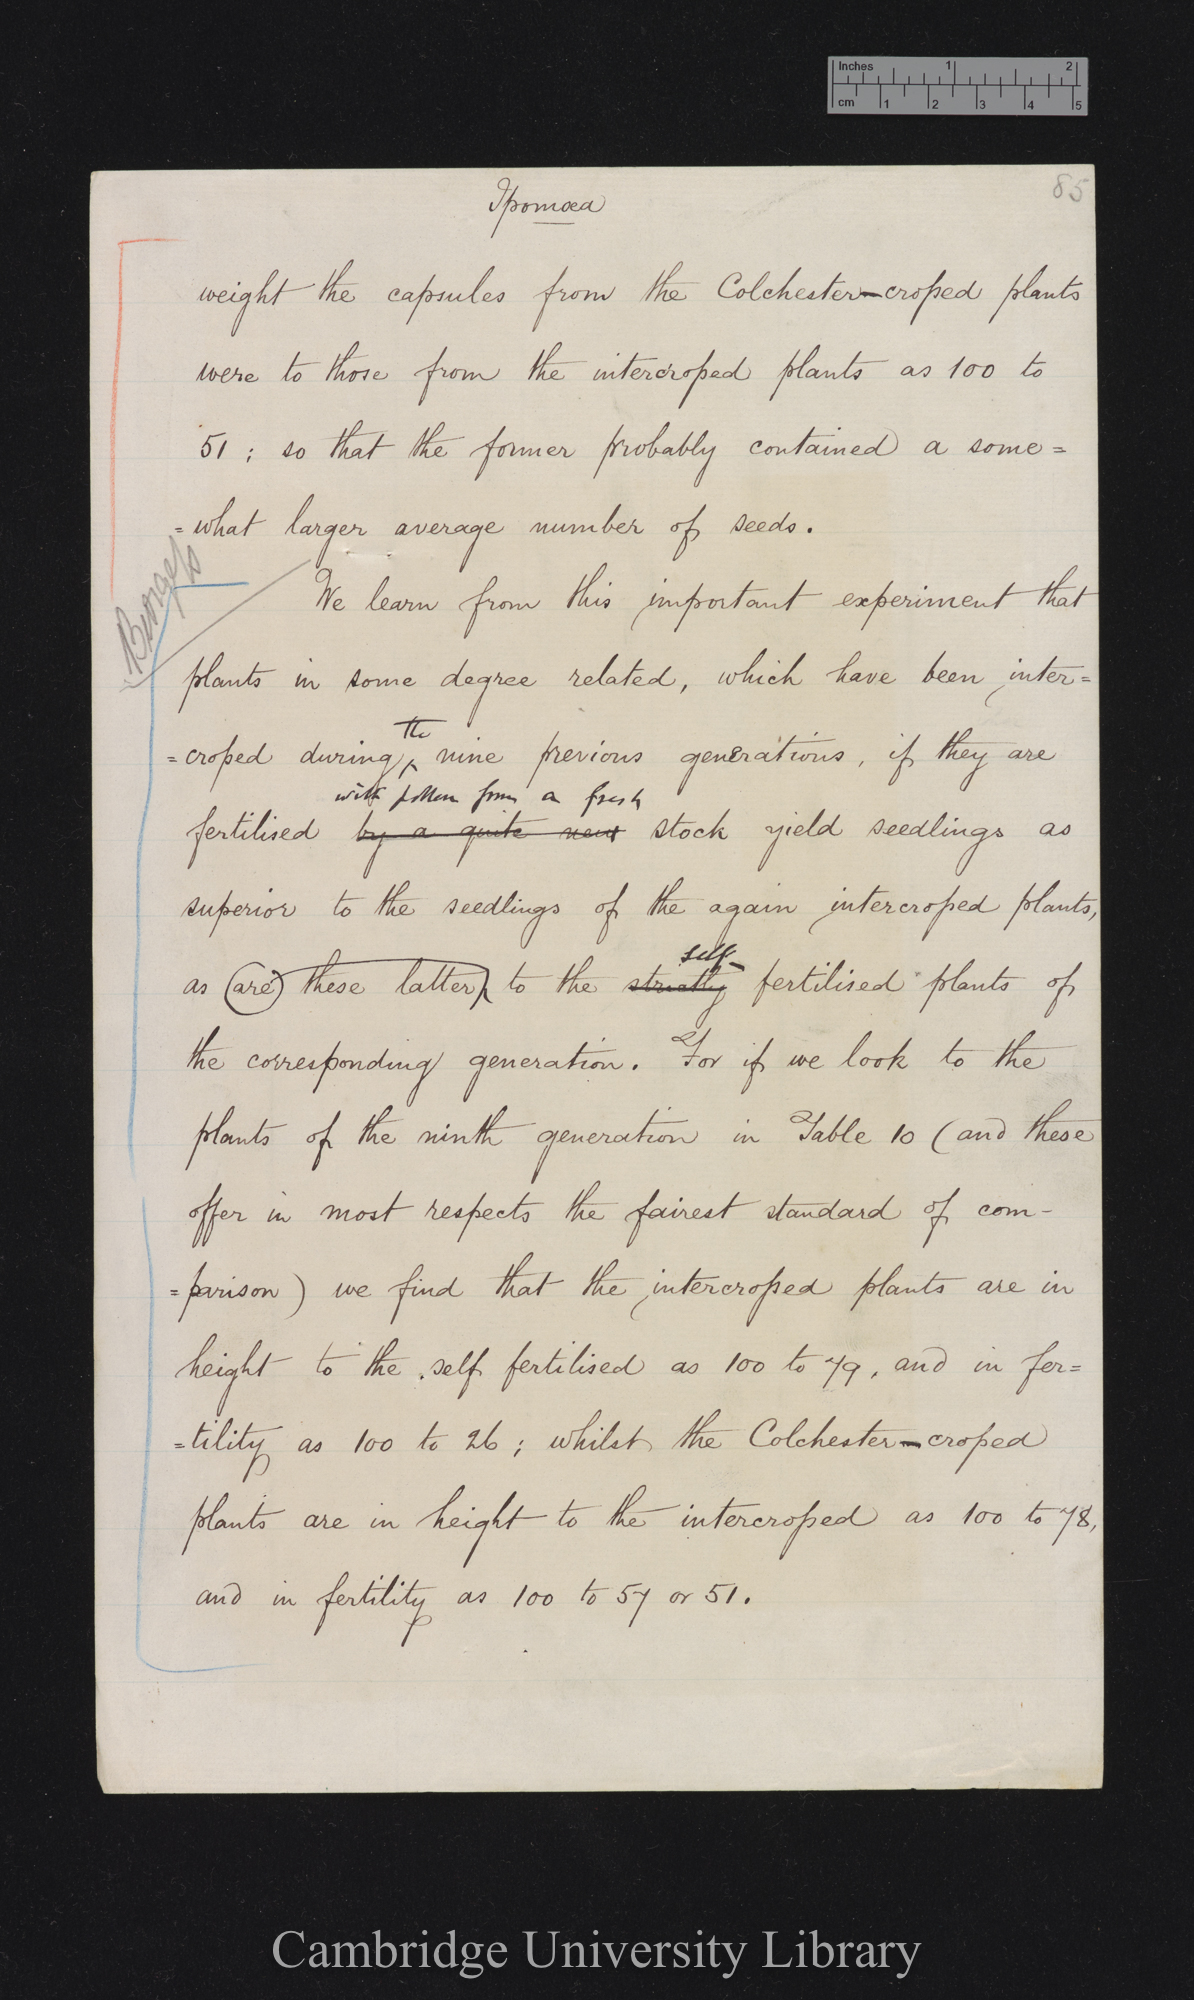 Inches 1 2
cm 1 2 3 4 5
85
Ipomœa
weight the capsules from the Colchester-croped plants
were to those from the intercroped plants as 100 to
51; so that the former probably contained a some=
=what larger average number of seeds.
Burgess
We learn from this important experiment that
plants in some degree related, which have been inter=
the
=croped during nine previous generations, if they are
with pollen from a fresh
fertilised by a quite new stock yield seedlings as
superior to the seedlings of the again intercroped plants,
self-
as (are) these latter, to the strictly fertilised plants of
the corresponding generation. For if we look to the
plants of the ninth generation in Table 10 (and these
offer in most respects the fairest standard of com-
=parison) we find that the intercroped plants are in
height to the self fertilised as 100 to 79, and in fer=
=tility as 100 to 26; whilst the Colchester-croped
plants are in height to the intercroped as 100 to 78,
and in fertility as 100 to 57 or 51.
Cambridge University Library